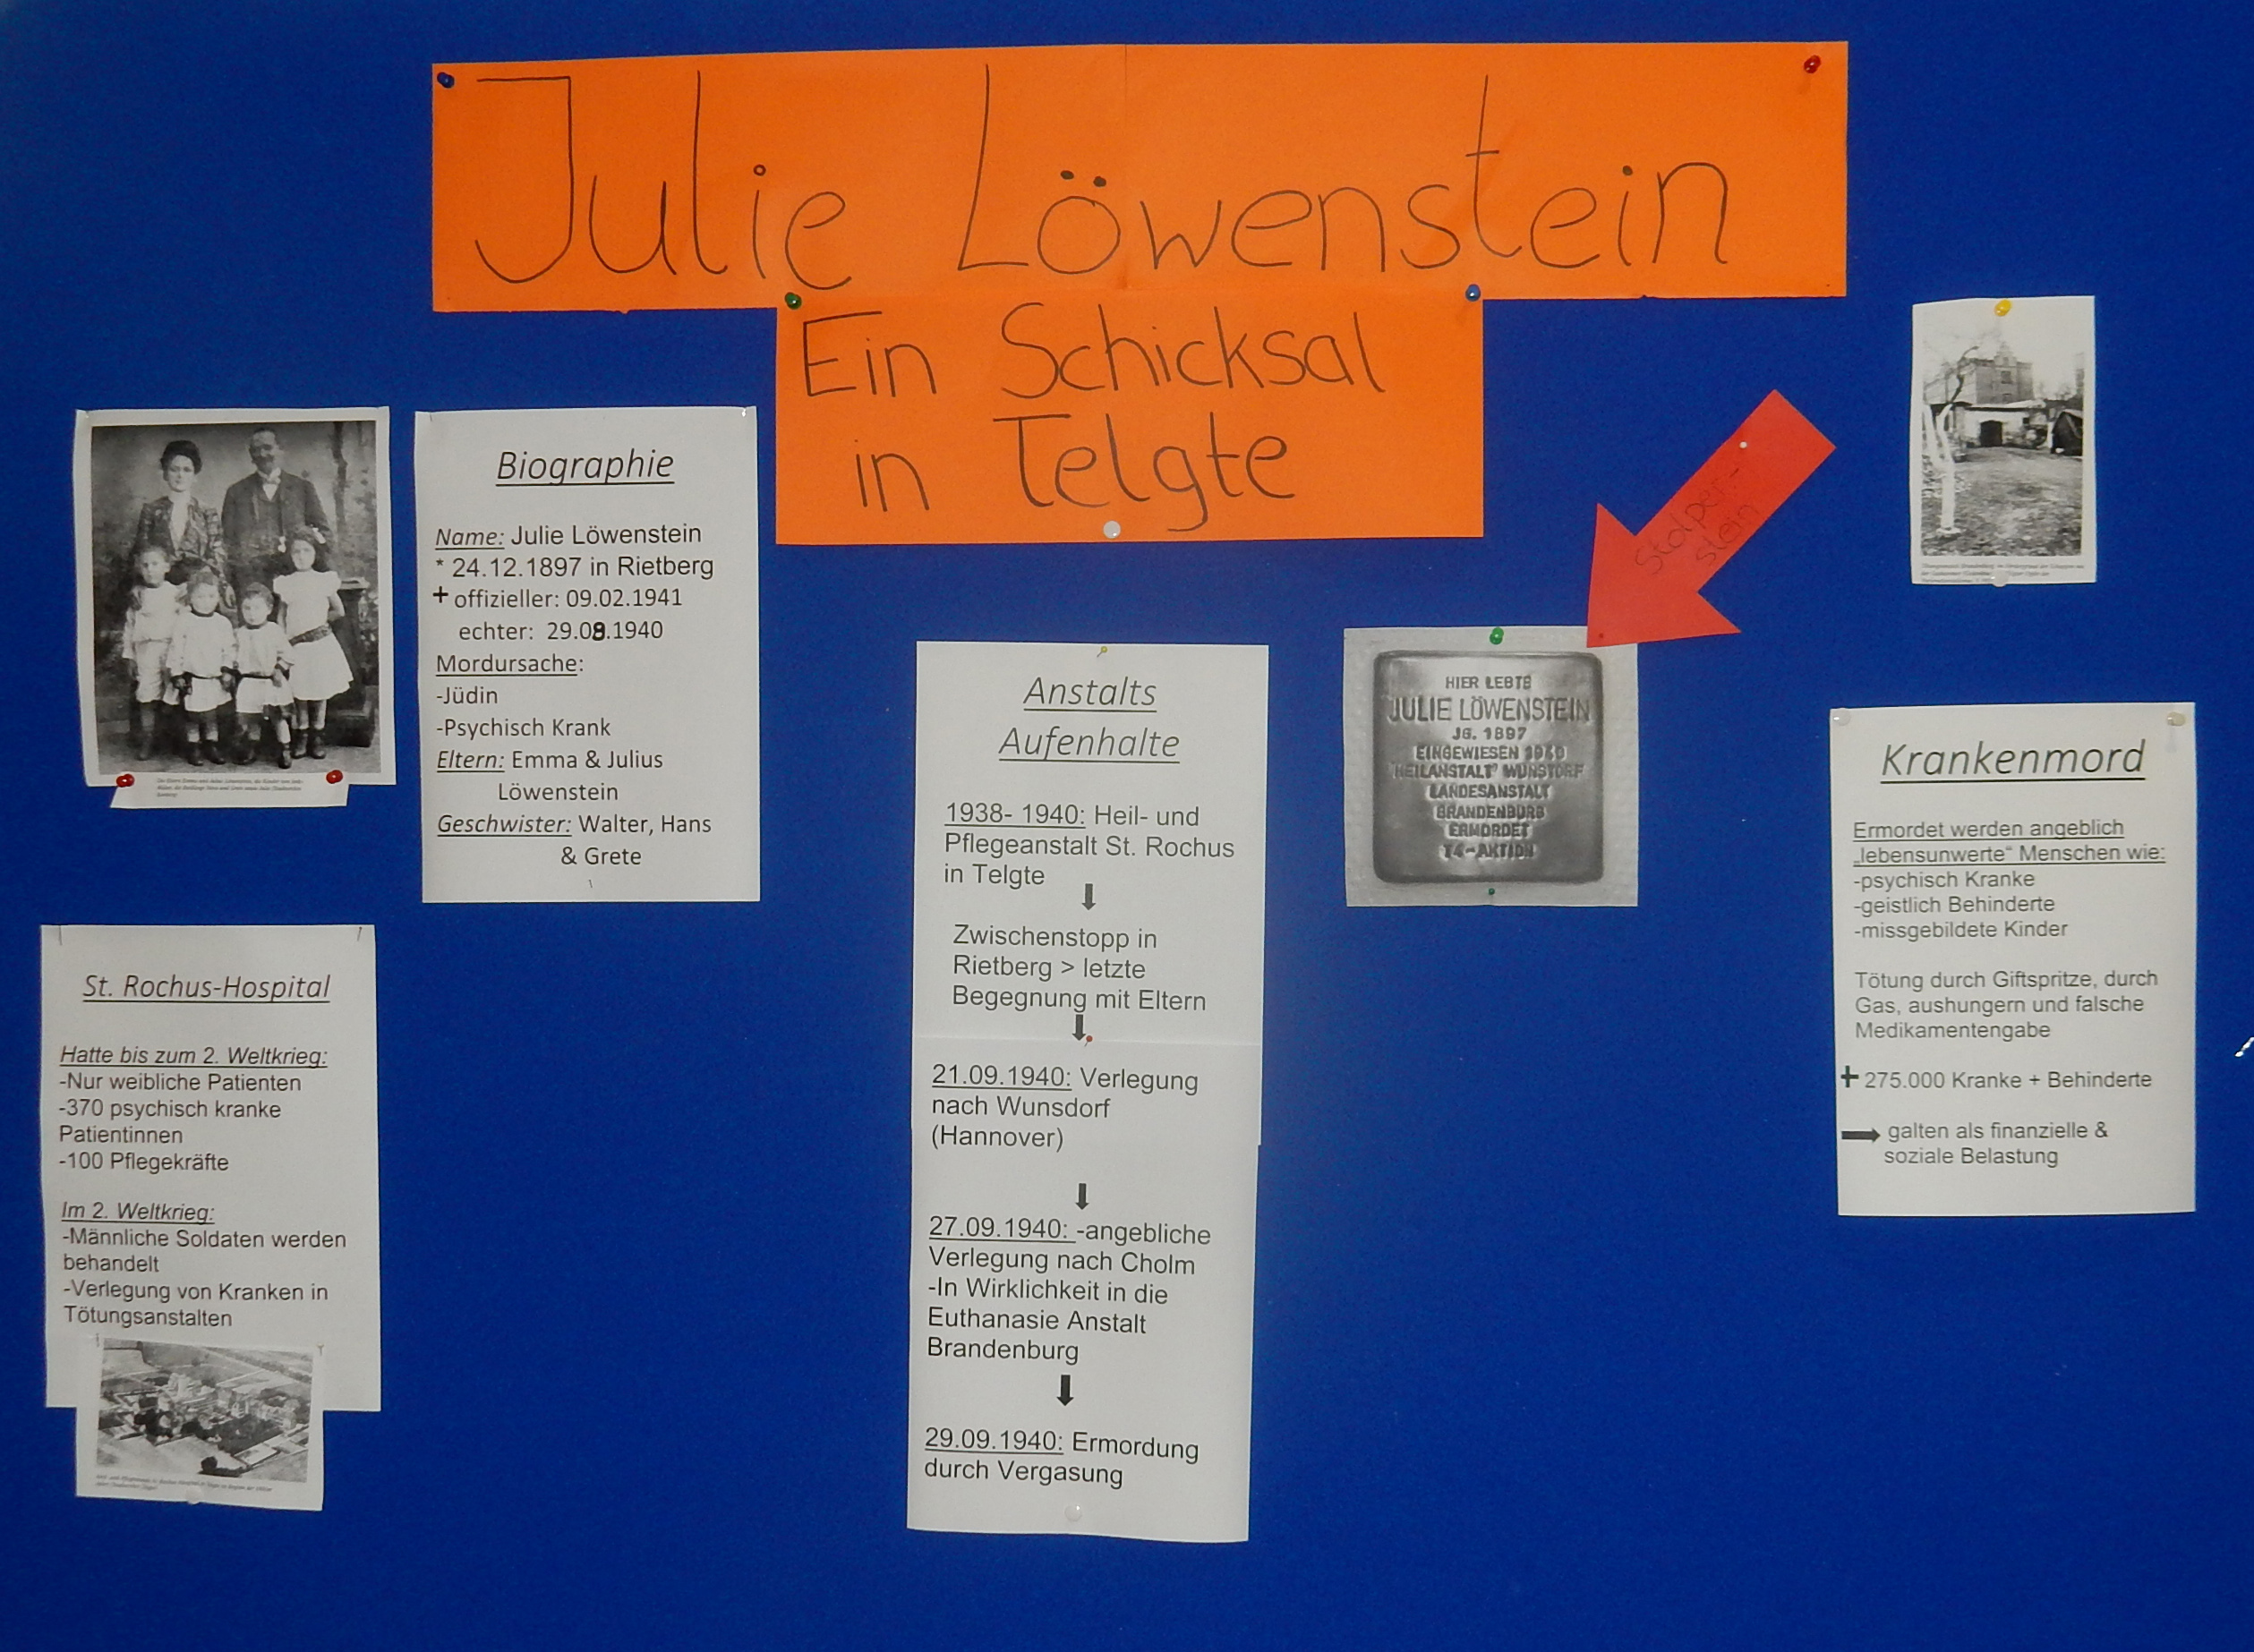 Julie Löwenstein
Ein Schicksal
in Telgte
Biographie
Name: Julie Löwenstein
* 24.12.1897 in Rietberg
+ offizieller: 09.02.1941
echter: 29.09.1940
Mordursache:
-Jüdin
-Psychisch Krank
Eltern: Emma & Julius
Löwenstein
Geschwister: Walter, Hans
& Grete
St. Rochus-Hospital
Hatte bis zum 2. Weltkrieg:
-Nur weibliche Patienten
-370 psychisch kranke
Patientinnen
-100 Pflegekräfte
Im 2. Weltkrieg:
-Männliche Soldaten werden
behandelt
-Verlegung von Kranken in
Tötungsanstalten
Anstalts
Aufenhalte
1938- 1940: Heil- und
Pflegeanstalt St. Rochus
in Telgte
Zwischenstopp in
Rietberg > letzte
Begegnung mit Eltern
21.09.1940: Verlegung
nach Wunsdorf
(Hannover)
27.09.1940: -angebliche
Verlegung nach Cholm
-In Wirklichkeit in die
Euthanasie Anstalt
Brandenburg
29.09.1940: Ermordung
durch Vergasung
Stolper-
stein
HIER LEBTE
JULIE LÖWENSTEIN
JG. 1897
EINGEWIESEN 1940
'HEILANSTALT' WUNSTORF
LANDESANSTALT
BRANDENBURG
ERMORDET
T4-AKTION
Krankenmord
Ermordet werden angeblich
„lebensunwerte“ Menschen wie:
-psychisch Kranke
-geistlich Behinderte
-missgebildete Kinder
Tötung durch Giftspritze, durch
Gas, aushungern und falsche
Medikamentengabe
+ 275.000 Kranke + Behinderte
galten als finanzielle &
soziale Belastung